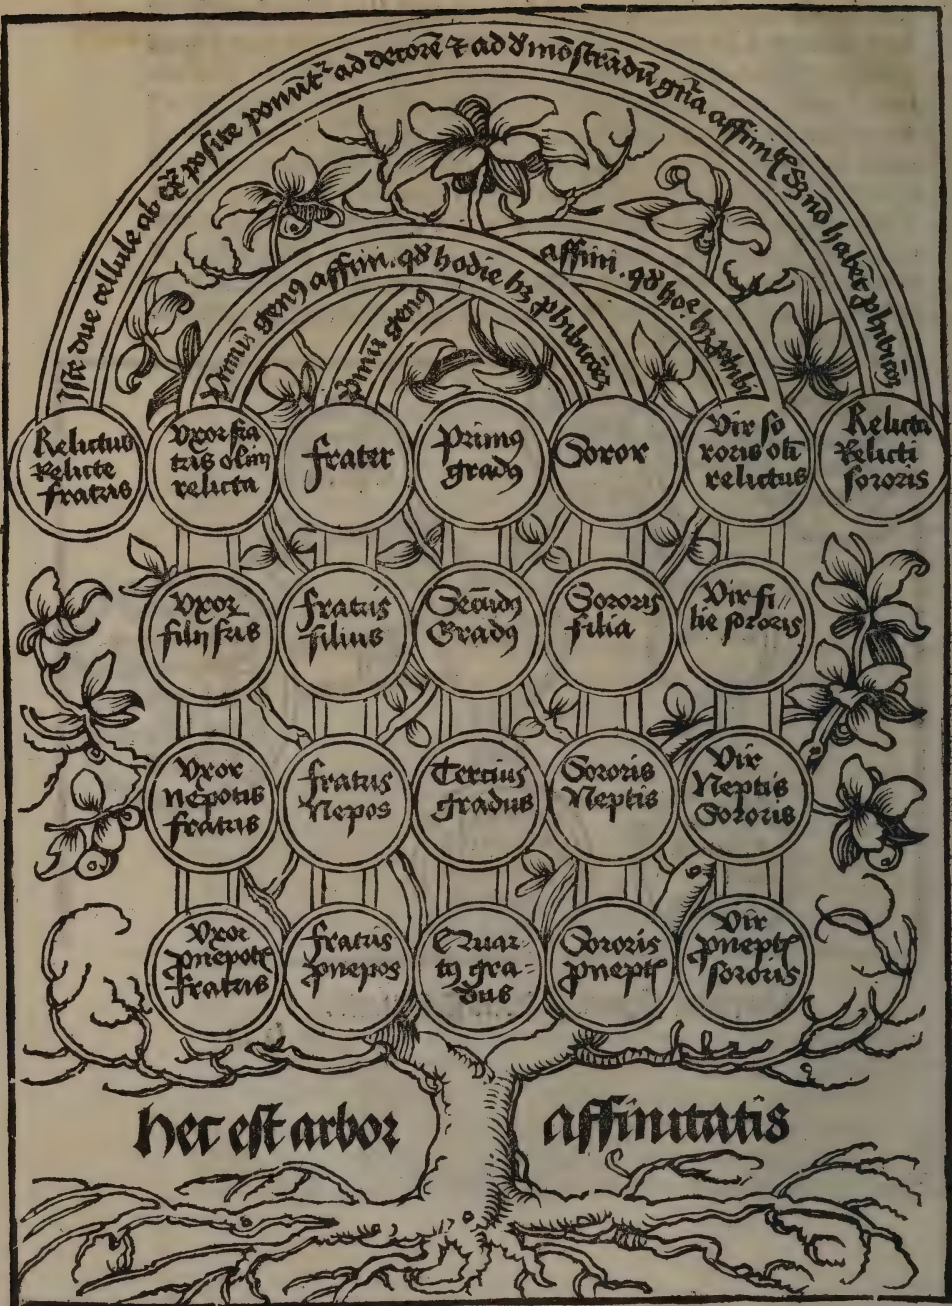 Iste due cellule ab extra posite ponunt² ad decorē ⁊ ad dmōstradū gn̄a affinit. sz nō habēt phibitōez
Primū genus affini. qd hodie hz phibitōez
Primū genus
affini. qd ho. hz phibi
Relictus
Relicte
fratris
Vxor fra
tris olim
relicta
frater
Primus
gradus
Soror
Vir so
roris oli
relictus
Relicta
Relicti
sororis
Vxor
filij fris
fratris
filius
Secūdus
Gradus
Sororis
filia
Vir fi//
lie sororis
Vxor
nepotis
fratris
fratris
Nepos
Tercius
gradus
Sororis
Neptis
Vir
Neptis
Sororis
Vxor
pnepotis
fratris
fratris
pnepos
Quar-
tus gra-
dus
Sororis
pneptis
Vir
pneptis
sororis
hec est arbor affinitatis